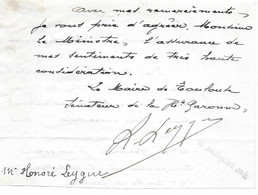 avec mes remerciements,
je vous prie d'agréer Monsieur
le Ministre, l'assurance de
mes sentiments de très haute
considération.
Le Maire de Toulouse
Sénateur de la Hte Garonne,
H Leygue
Mr Honoré Leygue